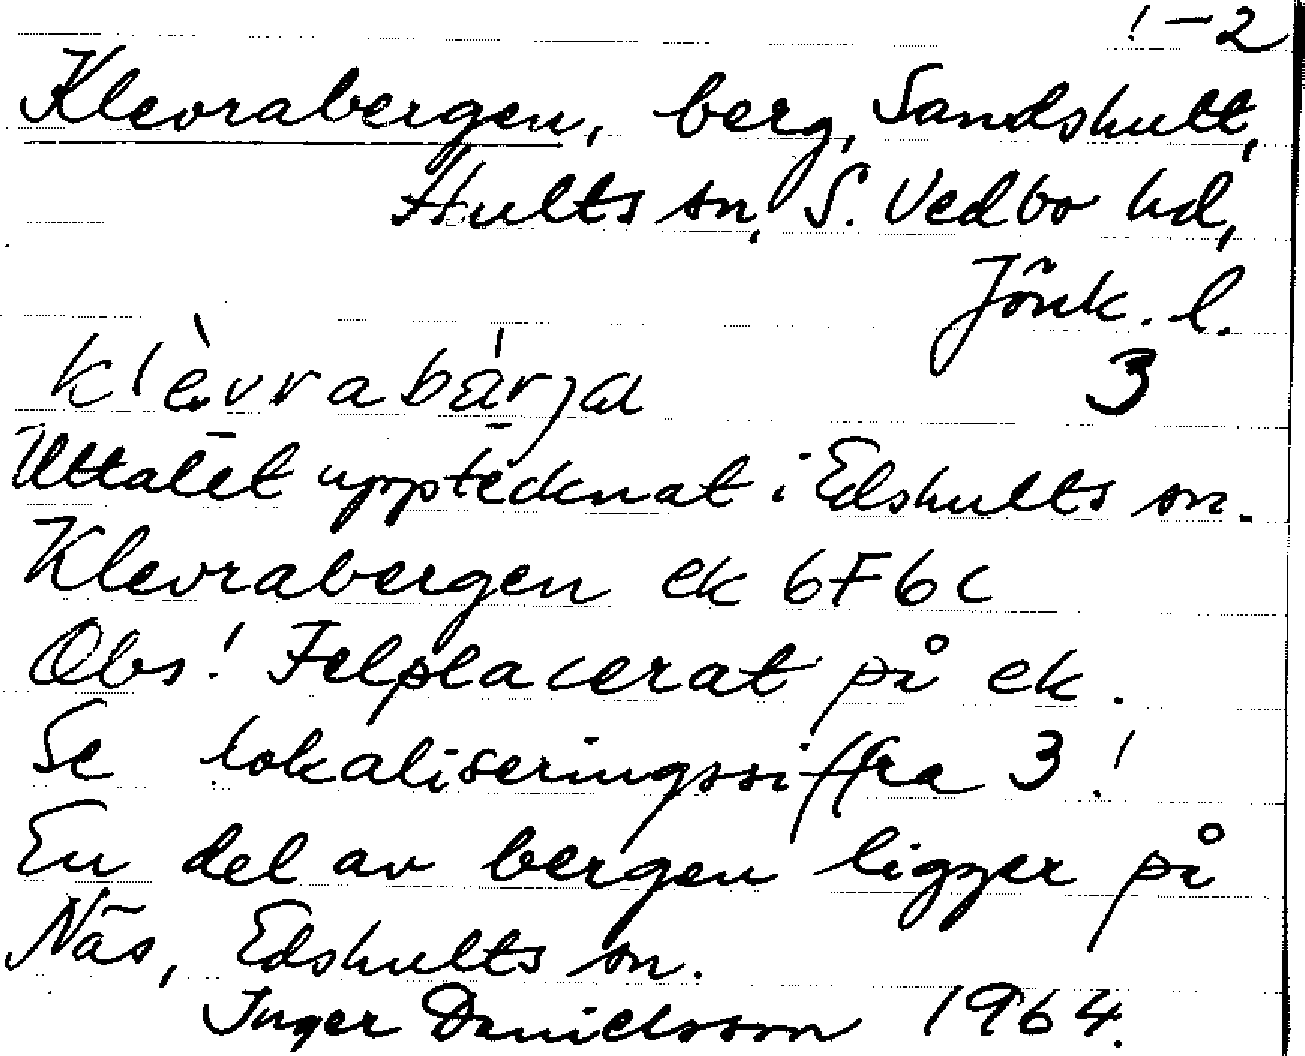 1-2
Klevrabergen, berg, Sandshult,
Hults sn, S. Vedbo hd,
Jönk. l.
klèvrabárja
3
Uttalet upptecknat i Edshults sn.
Klevrabergen ek 6F6c
Obs! Felplacerat på ek.
Se lokaliseringssiffra 3!
En del av bergen ligger på
Näs, Edshults sn.
Inger Danielsson 1964.